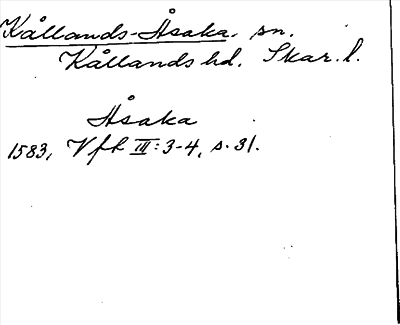 Kållands-Åsaka. sn.
Kållands hd. Skar. l.
Åsaka
1583, Vfh III:3-4, s. 31.